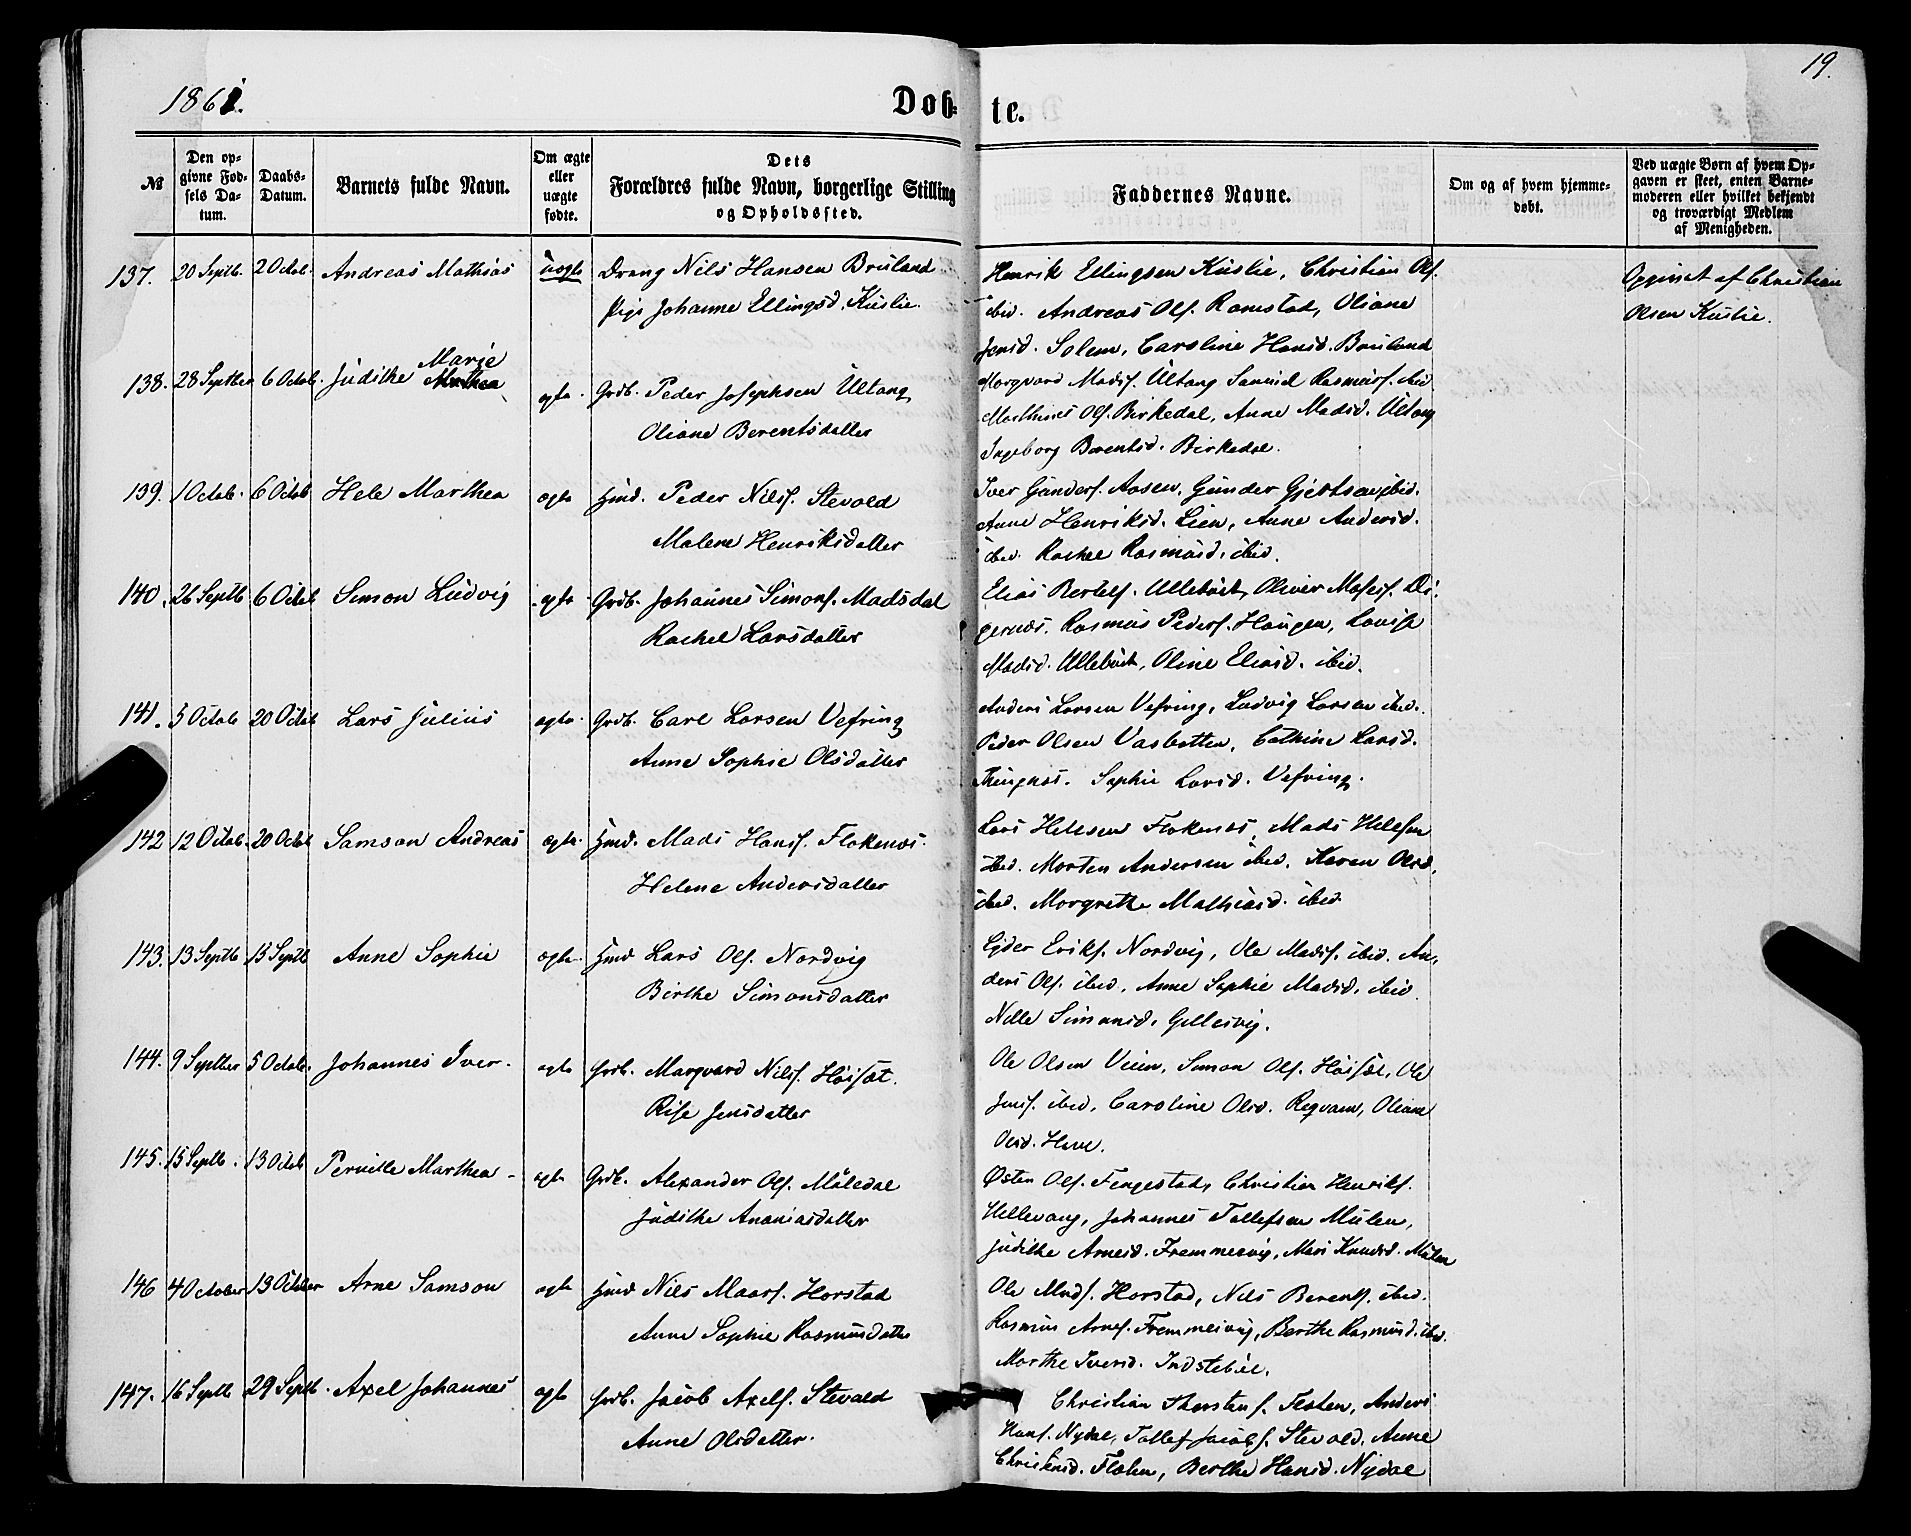 1861.
Døb-
te.
19.
№
Den op-
givne Fød-
sels Da-
tum.
Daabs-
Datum.
Barnets fulde Navn.
Om ægte
eller
uægte
fødte.
Dets
Forældres fulde Navn, borgerlige Stilling
og Opholdssted.
Faddernes Navne.
Om og af hvem hjemme-
døbt.
Ved uægte Børn af hvem Op-
gaven er skeet, enten Barne-
moderen eller hvilket bekjendt
og troværdigt Medlem
af Menigheden.
137. 20 Septb. 2 Octob. Andreas Mathias uægte Dreng Nils Hansen Bruland
Pige Johanne Ellingsd. Kuslie.
Henrik Ellingsen Kuslie, Christian Ols.
ibid. Andreas Ols. Ramstad, Oliane
Jensd. Solem, Caroline Hansd. Bruland
Opgivet af Christian
Olsen Kuslie.
138. 28 Septber 6 Octob. Judithe Marie ægte. Grdb. Peder Josephsen Ultang
Oliane Berentsdatter
Morgvard Madss. Ultang Samuel Rasmuss. ibid.
Mathias Ols. Birkedal, Anne Madsd. Ultang
Ingeborg Berentsd. Birkedal.
139. 1 Octob. 6 Octob Hele Marthea ægte Hmd. Peder Nilss. Stevold
Malene Henriksdatter
Iver Gunders. Aasen, Gunder Gjertsen ibid.
Anne Henriksd. Lien, Anne Andersd.
ibid. Rachel Rasmusd. ibid.
140. 26 Septb 6 Octob Simon Ludvig ægte Grdb. Johannes Simons. Madsdal
Rachel Larsdatter
Elias Bertels. Ullebust, Oliver Moses.
Rasmus Peders. Haugen, Lovise
Madsd. Ullebust, Oline Eliasd. ibid.
141. 5 Octob 20 Octob Lars Julius ægte. Grdb. Carl Larsen Vefring
Anne Sophie Olsdatter
Anders Larsen Vefring, Ludvig Larsen ibid.
Peder Olsen Vasbotten, Cathine Larsd.
Thingnes. Sophie Larsd. Vefring.
142 12 Octob. 20 Octob Samson Andreas ægte. Hmd. Mads Hans. Flokenes.
Helene Andersdatter
Lars Helesen Flokenes, Mads Helesen
ibid. Morten Andersen ibid. Karen Olsd.
ibid. Morgrethe Mathiasd. ibid.
143. 13 Septb 15 Septb Anne Sophie ægte. Hmd Lars Ols. Nordvig
Birthe Simonsdatter
Erikss. Nordvig, Ole Madss. ibid. An-
ders Ols. ibid, Anne Sophie Madsd. ibid
Nille Simonsd. Gillesvig.
144. 9 Septber 5 Octob. Johannes Iver. ægte Grdb. Marqvard Nilss. Høisæt.
Rise Jensdatter
Ole Olsen Veien, Simon Ols. Høisæt, Ole
Jenss. ibid, Caroline Olsd. Reqvam, Oliane
Olsd. Have.
145. 15 Septb. 13 Octob Pernille Marthea ægte Grdb. Alexander Ols. Møledal
Judithe Ananiasdatter
Østen Ols. Fengestad, Christian Henriks.
Hellevang, Johannes Tollefsen Mulen,
Judithe Arnesd. Fremmesvig, Mari Knudsd. Mulen
146 4 October 13 October Arne Samson ægte Hmd Nils Maars. Horstad
Anne Sophie Rasmusdatter
Ole Mads. Horstad, Nils Berents. ibid.
Rasmus Arnes. Fremmesvig, Berthe Rasmusd. ibid.
Marthe Iversd. Indstebøe.
147. 16 Septb 29 Septb. Axel Johannes ægte Grdb. Jacob Axels. Stevold
Anne Olsdatter.
Christian Thorstens. Floten, Anders
Hans. Nydal, Tollef Jacobs. Stevold, Anne
Christensd. Floten, Berthe Hansd. Nydal